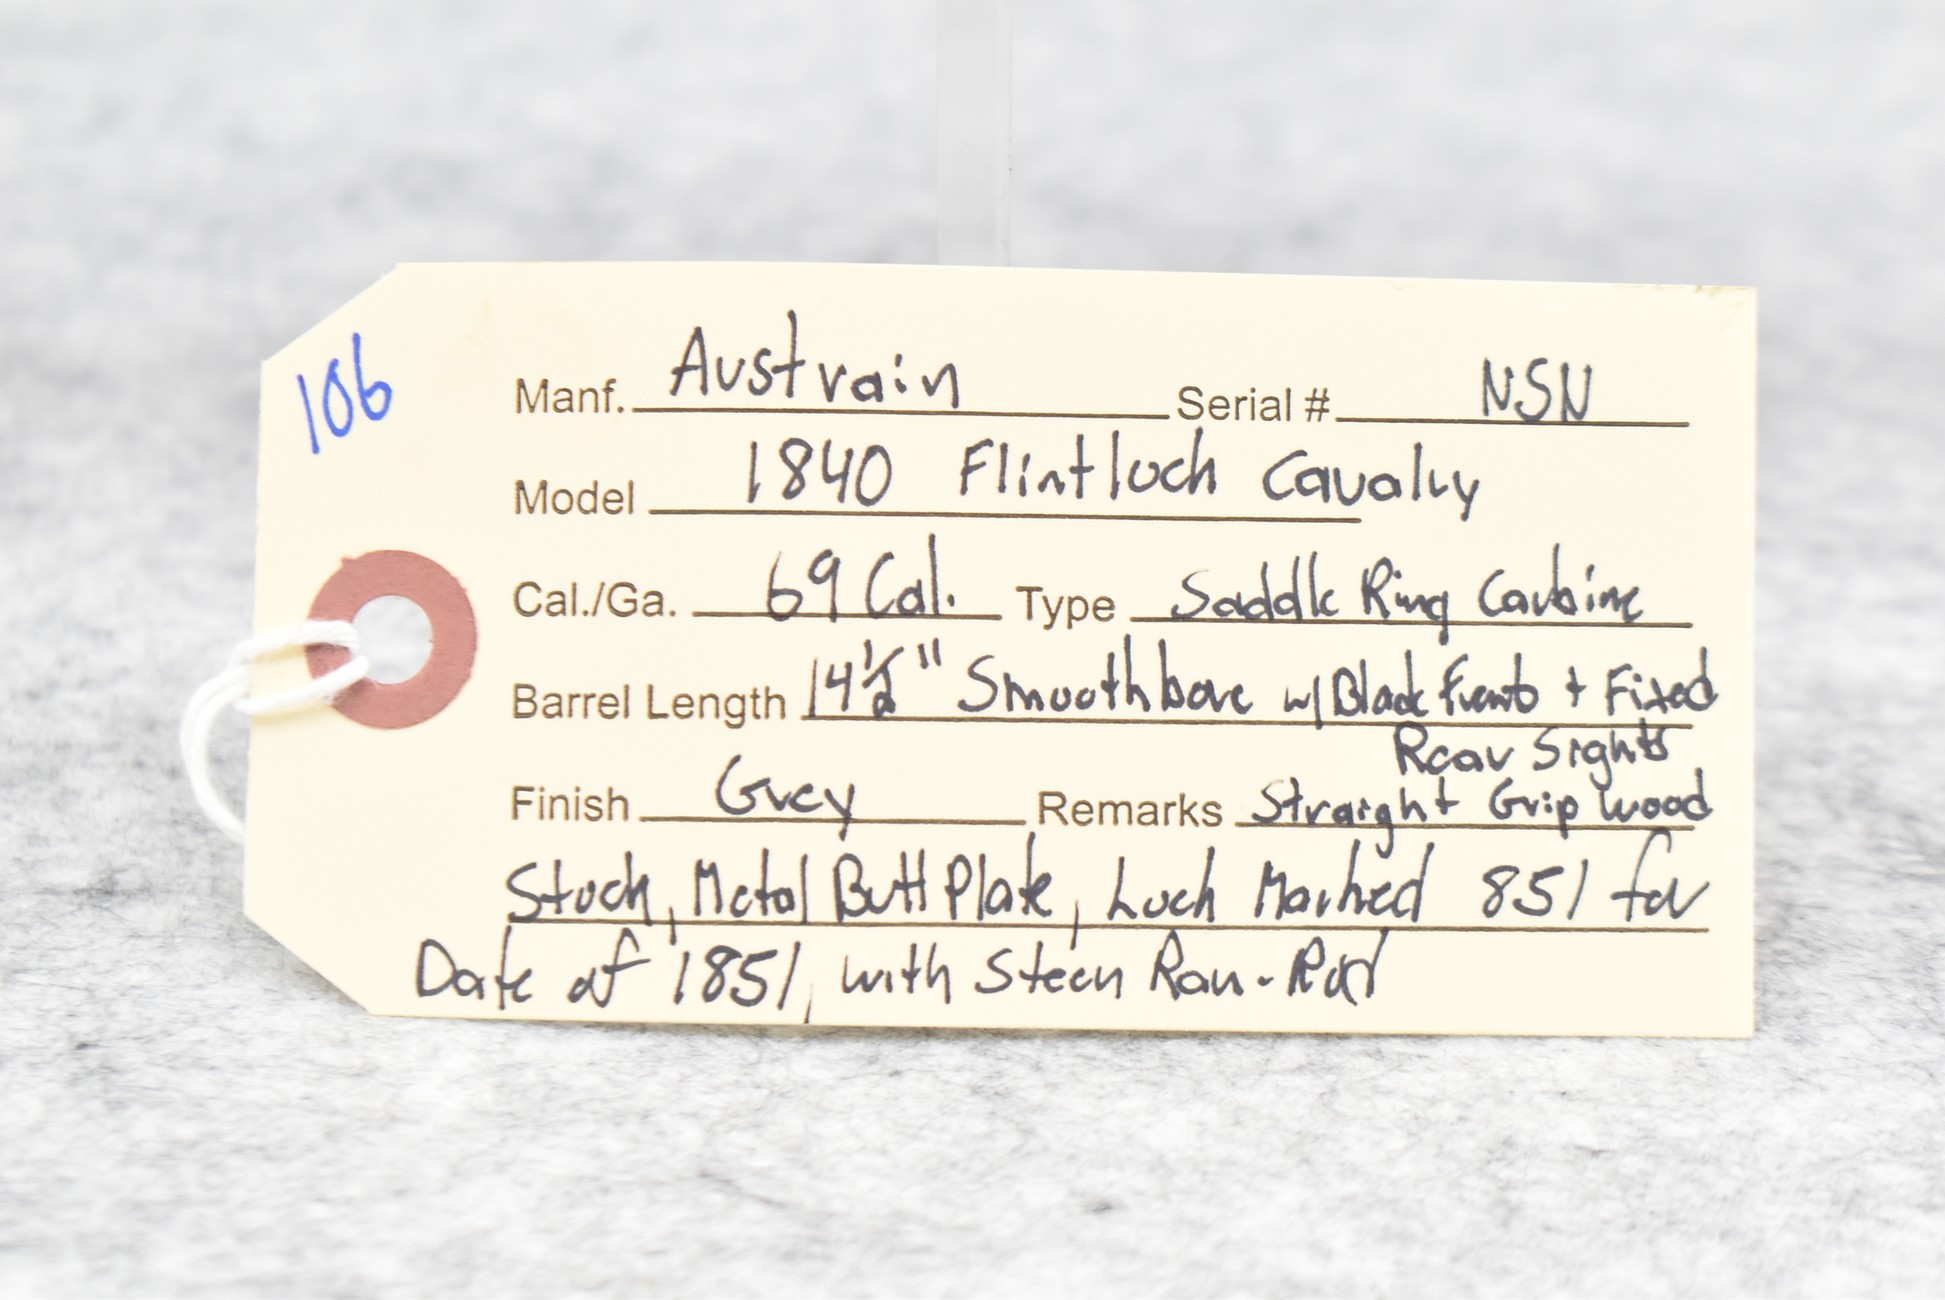 106
Manf. Austrain Serial # NSN
Model 1840 Flintlock Cavalry
Cal./Ga. 69 Cal. Type Saddle Ring Carbine
Barrel Length 14 1/2" Smoothbore w/ Blade Front + Fixed
Rear Sights
Finish Grey Remarks Straight Grip Wood
Stock, Metal Butt Plate, Lock Marked 851 for
Date of 1851, with Steen Ram-Rod